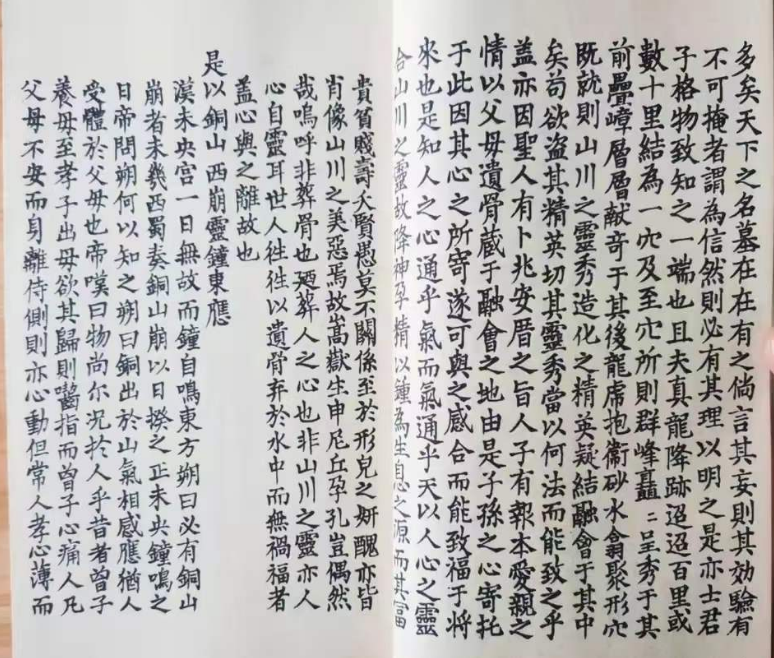 多矣天下之名墓在在有之倘言其妄則其効驗有
不可掩者謂為信然則必有其理以明之是亦士君
子格物致知之一端也且夫真龍降跡迢迢百里或
數十里結為一穴及至穴所則群峰矗〻呈秀于其
前疊嶂層層献奇于其後龍虎抱衞砂水翕聚形穴
既就則山川之靈秀造化之精英凝結融會于其中
矣苟欲盜其精英切其靈秀當以何法而能致之乎
盖亦因聖人有卜兆安厝之旨人子有報本愛親之
情以父母遺骨蔵于融會之地由是子孫之心寄托
于此因其心之所寄遂可與之感合而能致福于將
來也是知人之心通乎氣而氣通乎天以人心之靈
合山川之靈故降神孕精以鍾為生息之源而其富
貴貧賤壽夭賢愚莫不關係至於形皃之妍醜亦皆
肖像山川之美惡焉故嵩嶽生申尼丘孕孔豈偶然
哉嗚呼非葬骨也廼葬人之心也非山川之靈亦人
心自靈耳世人徃徃以遺骨弃於水中而無禍福者
盖心與之離故也
是以銅山西崩靈鐘東應
漢未央宫一日無故而鐘自鳴東方朔曰必有銅山
崩者未幾西蜀奏銅山崩以日揆之正未央鐘鳴之
日帝問朔何以知之朔曰銅出於山氣相感應猶人
受體於父母也帝嘆曰物尚尔况扵人乎昔者曾子
養母至孝子出母欲其歸則嚙指而曾子心痛人凡
父母不安而身離侍側則亦心動但常人孝心薄而